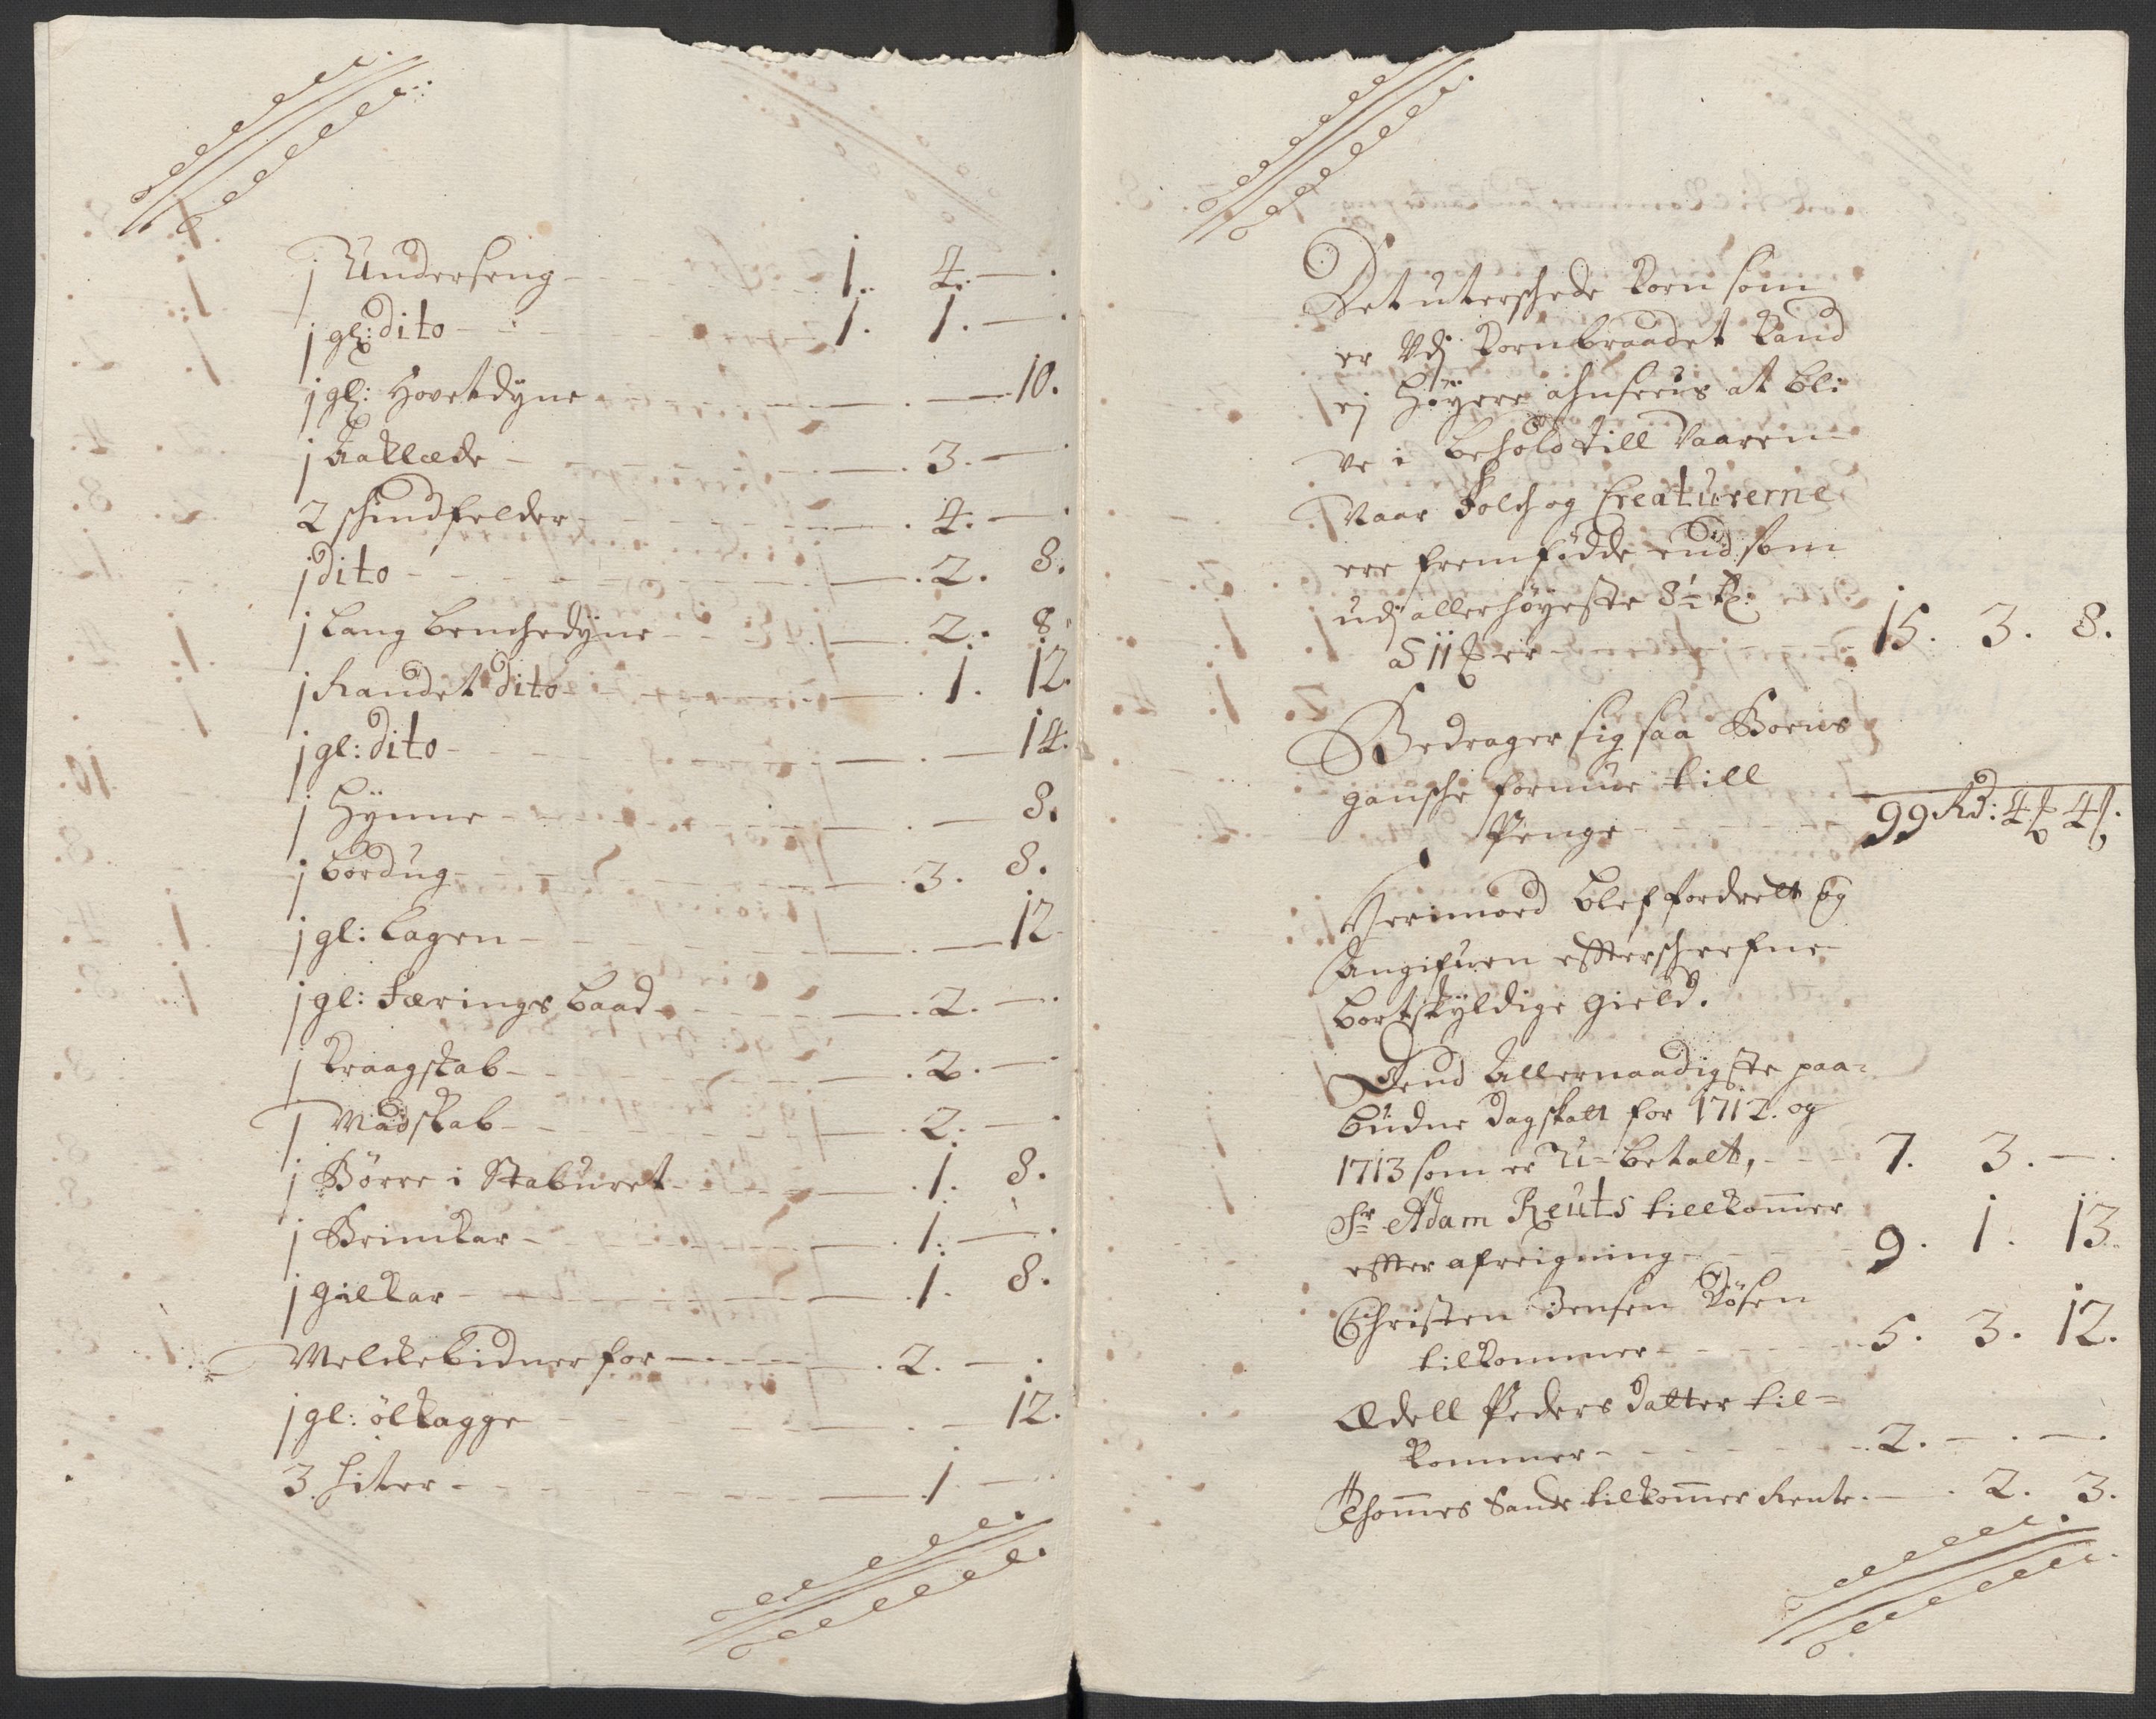 j Underseng - 1. 4. -
j gl: dito - 1. 1. -
j gl: Hovetdyne - 10.
j Aaklæde - 3. -
2 schindfelder - 4. -
j dito - 2. 8.
j lang benchedyne - 2. 8.
j Randet dito - 1. 12.
j gl: dito - 14.
j Hynne - 8.
j bordug - 3. 8.
j gl: lagen - 12.
j gl: Færings baad - 2. -
j kraagskab - 2. -
j Madskab - 2. -
j Börre i Staburet - 1. 8.
j Brimkar - 1. -
j gilkar - 1. 8.
Melckebidner for - 2. -
j gl: ölkagge - 12.
3 biter - 1. -
Det uterschede korn som
er Udj kornbraadet kand
ej Höyere ahnsees at bli
ve i behold till vaaren
Naar Folch og Creaturerne
ere fremfödde end som
udj allerhöyeste 8½ tr:
a 11 er - 15. 3. 8.
Bedrager sig saa Boens
gansche formue till
Penge - 99 Rd: 4 4 s.
Herimoed blef fordrelt og
Angifuen effterschrefne
bortskyldige gield.
Dend Allernaadigste paa=
budne dagskatt for 1712. og
1713 som er U=betalt, - 7. 3. -
Sr Adam Reuts tillkommer
effter afreigning - 9. 1. 13.
Christen Jensen Kösen
tilkommer - 5. 3. 12.
Ædell Peders datter til=
kommer - 2. - . -
Thommes Sande tilkommer Rente. - . 2. 3.